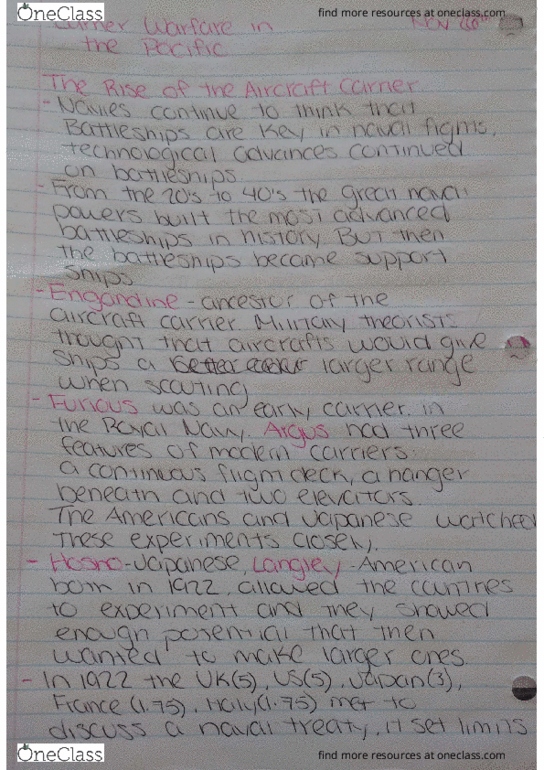 OneClass
find more resources at oneclass.com
Carrier Warfare in
NOV
the Pacific
The Rise of the Aircraft Carrier
- Navies continue to think that
Battleships are key in naval fights,
technological advances continued
on battleships
- From the 20's to 40's the great naval
powers built the most advanced
battleships in history. BUT then
the battleships became support
ships
- Engandine - ancestor of the
aircraft carrier. Military theorists
thought that aircrafts would give
ships a better larger range
when scouting
- Furious was an early carrier in
the Royal Navy. Argus had three
features of modern carriers:
a continuous flight deck, a hanger
beneath and two elevators.
The Americans and Japanese watched
these experiments closely.
- Hosho - Japanese, Langley - American
both in 1922, allowed the countries
to experiment and they showed
enough potential that then
wanted to make larger ones.
- In 1922 the UK(5), US(5), Japan(3),
France (1.75), Italy(1.75) met to
discuss a naval treaty, it set limits
OneClass
find more resources at oneclass.com